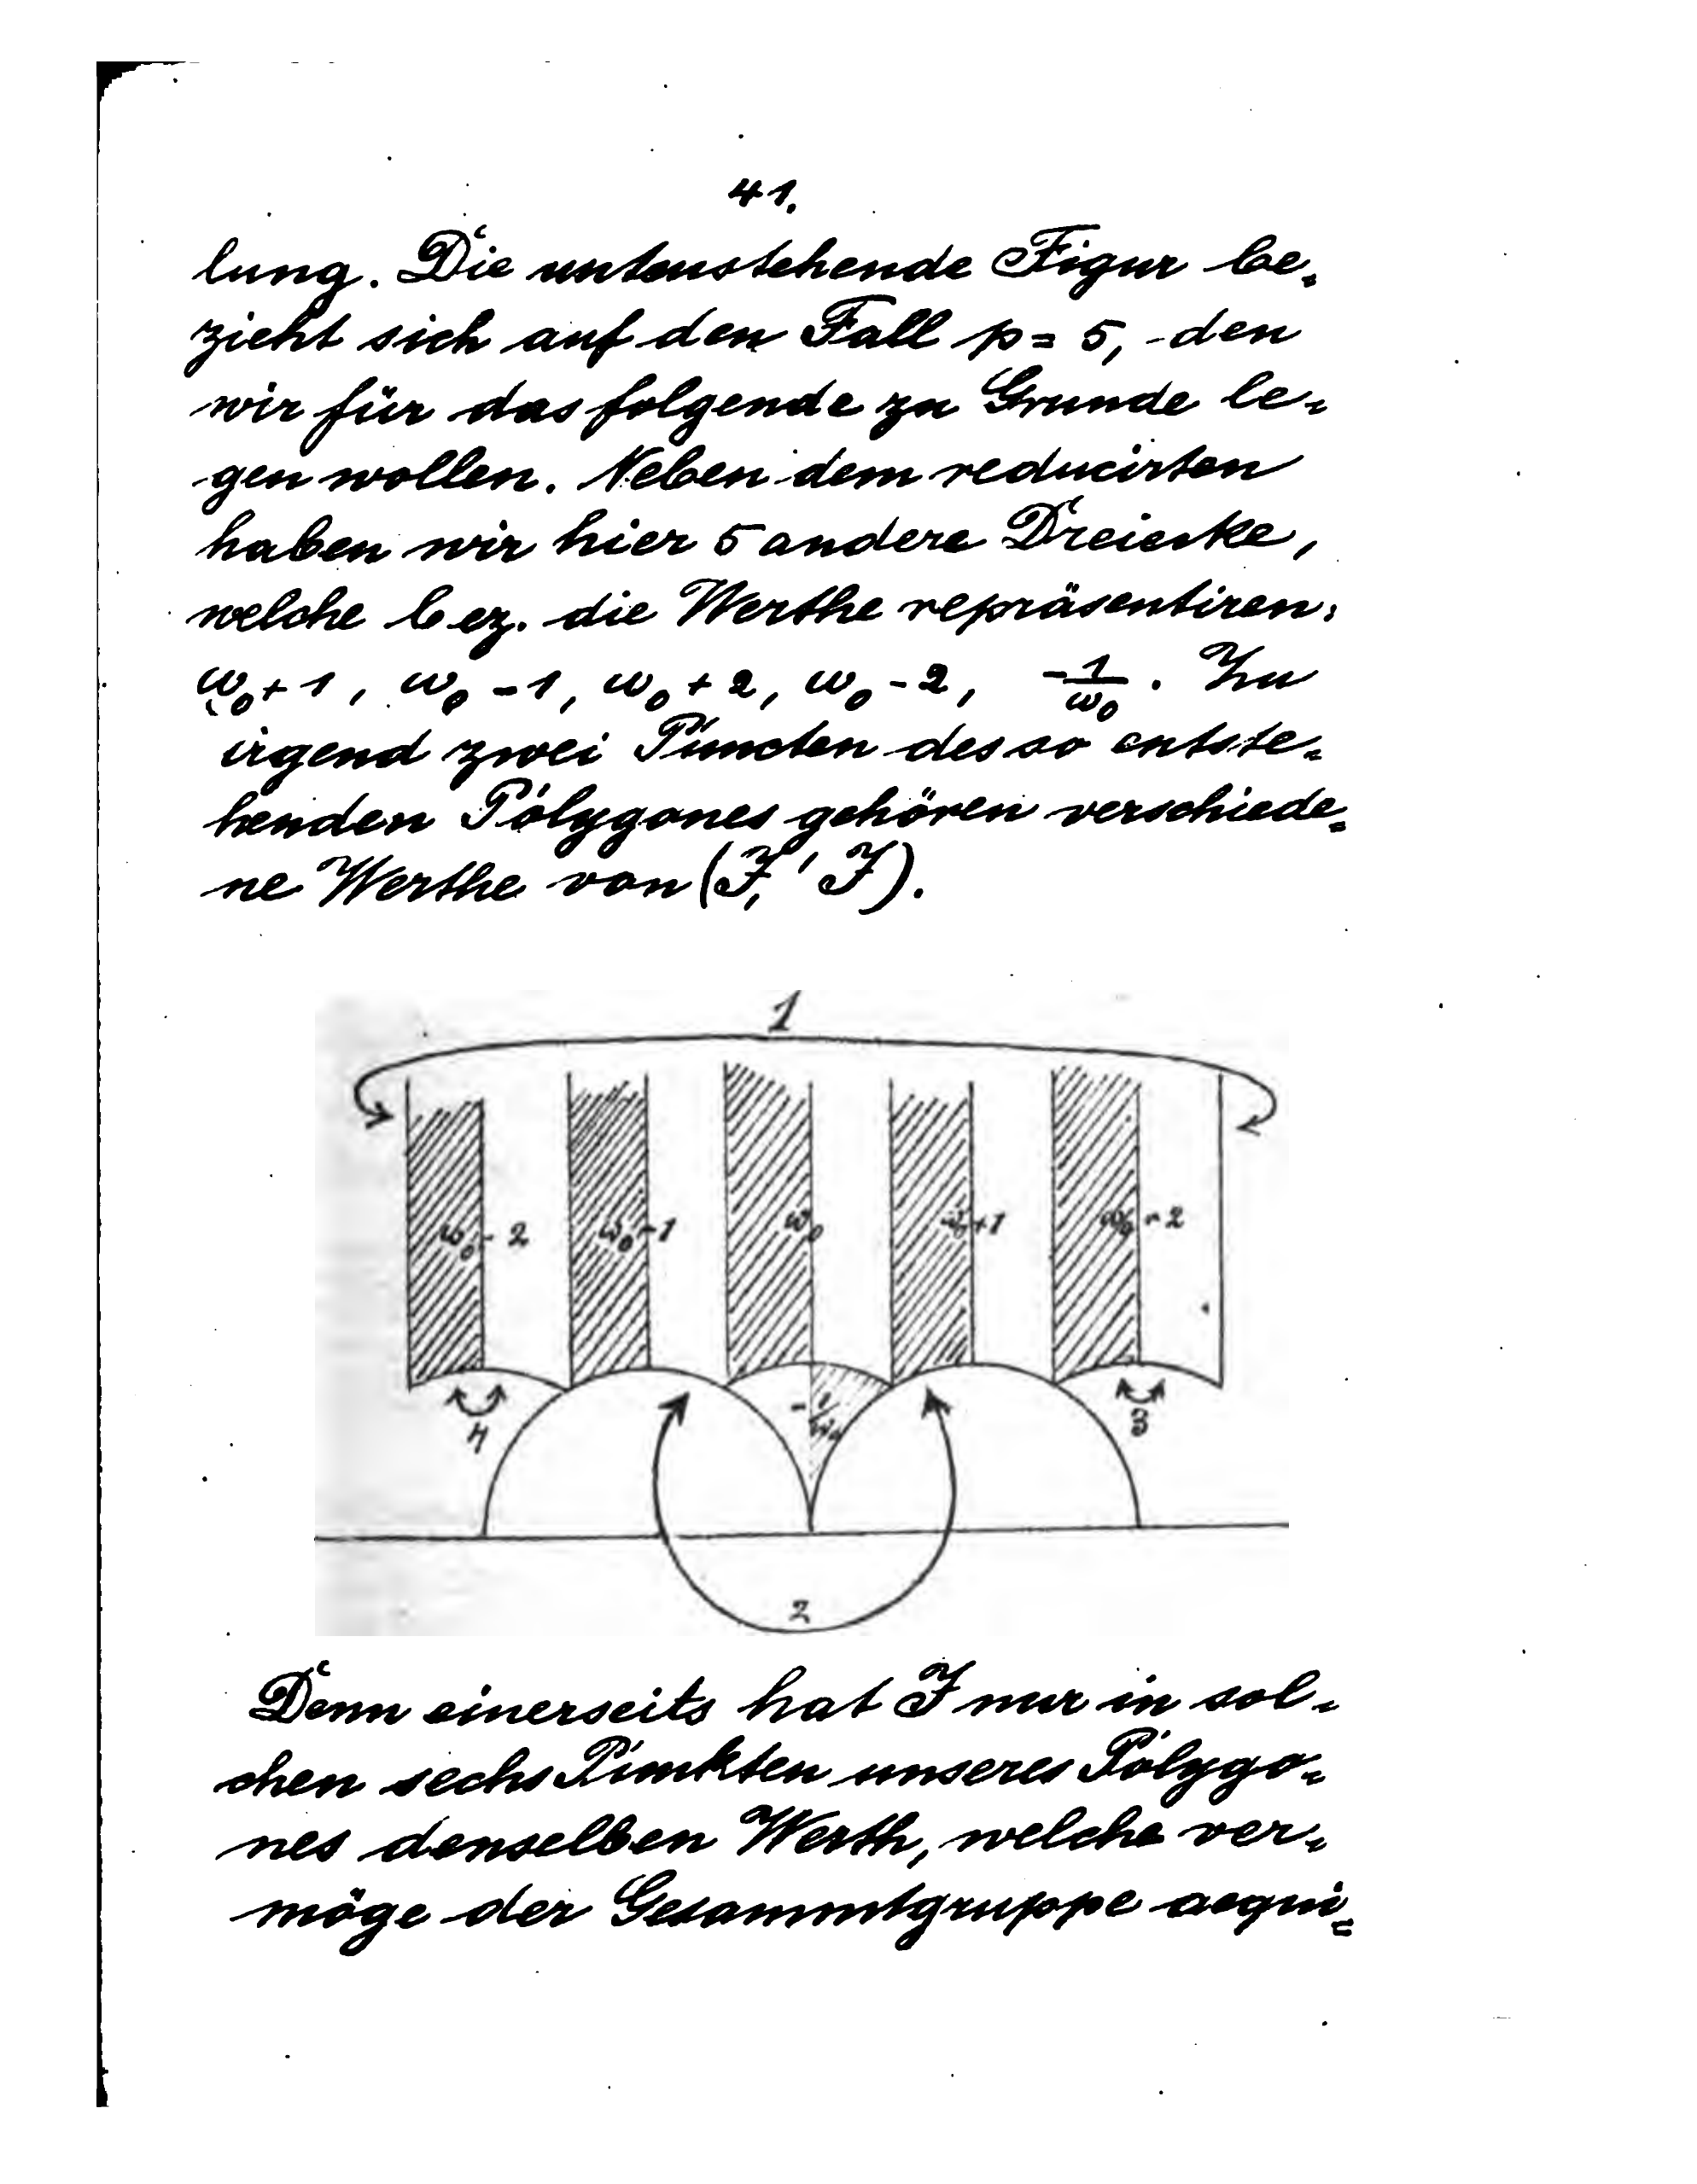 41.
lung. Die untenstehende Figur be-
zieht sich auf den Fall p = 5, den
wir für das folgende zu Grunde le-
gen wollen. Neben dem reducirten
haben wir hier 5 andere Dreiecke,
welche bez. die Werthe repräsentiren:
ω₀+1, ω₀-1, ω₀+2, ω₀-2, -1/ω₀. Zu
irgend zwei Puncten des so entste-
henden Polygones gehören verschiede-
ne Werthe von (J,'J).
1
ω₀-2 ω₀-1 ω₀ ω₀+1 ω₀+2
-1/ω₀
4 3
2
Denn einerseits hat J nur in sol-
chen sechs Punkten unseres Polygo-
nes denselben Werth, welche ver-
möge der Gesammtgruppe aequi-